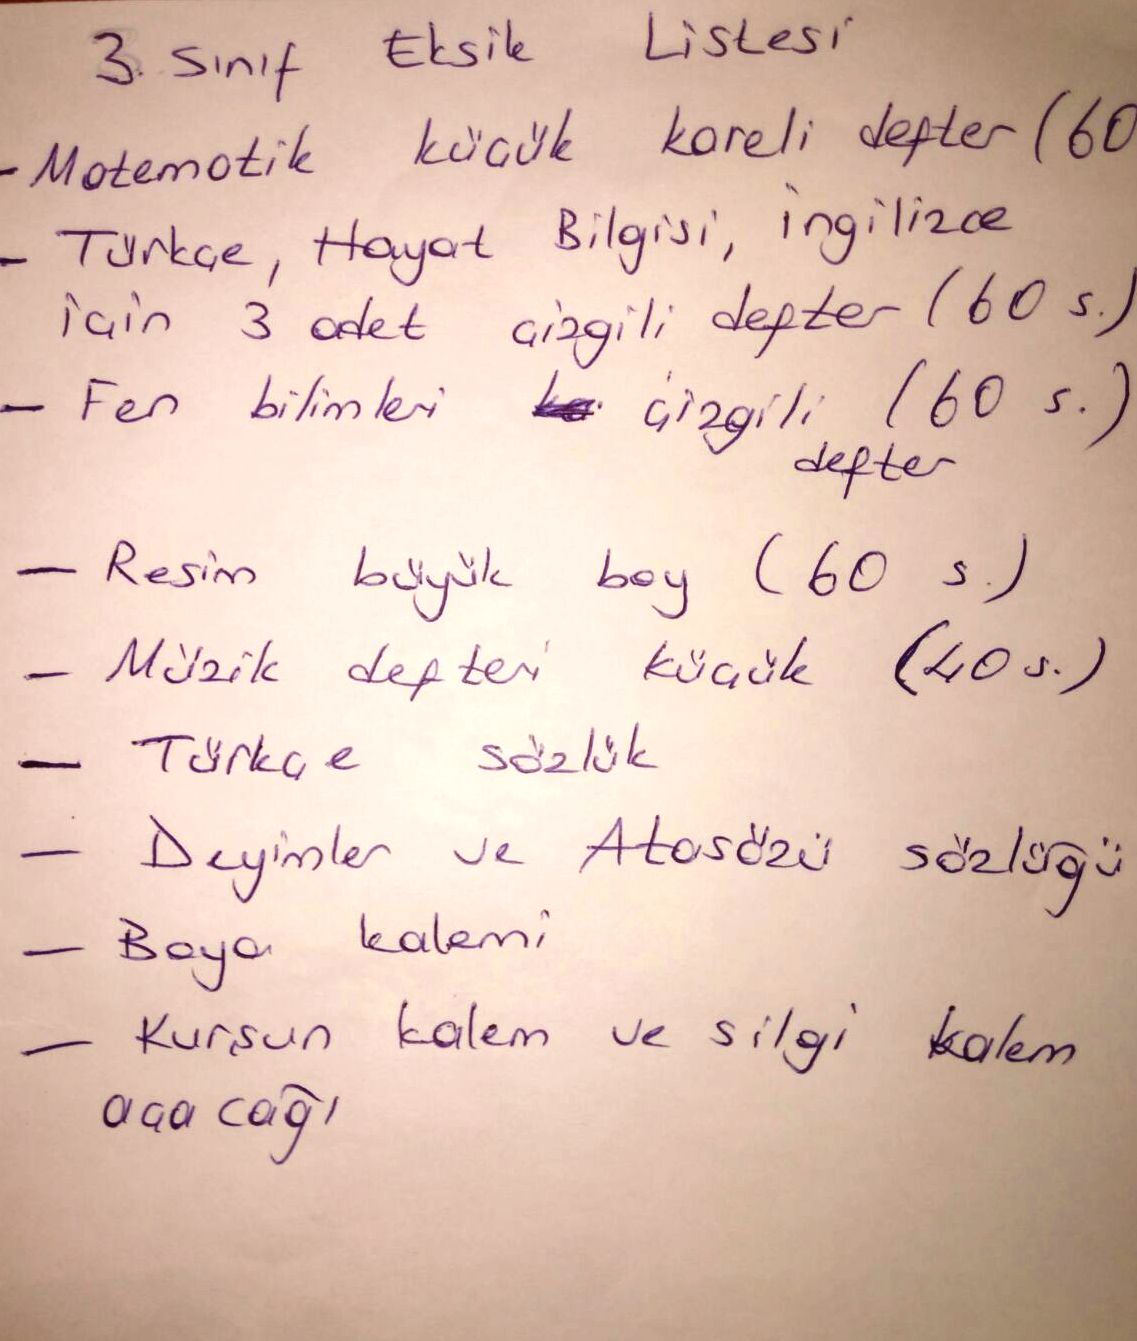 3. Sınıf Eksik Listesi
- Matematik küçük kareli defter (60
- Türkçe, Hayat Bilgisi, ingilizce
için 3 adet çizgili defter (60 s.)
- Fen bilimleri çizgili (60 s.)
defter
- Resim büyük boy (60 s.)
- Müzik defteri küçük (40 s.)
- Türkçe sözlük
- Deyimler ve Atasözü sözlüğü
- Boya kalemi
- Kurşun kalem ve silgi kalem
açacağı